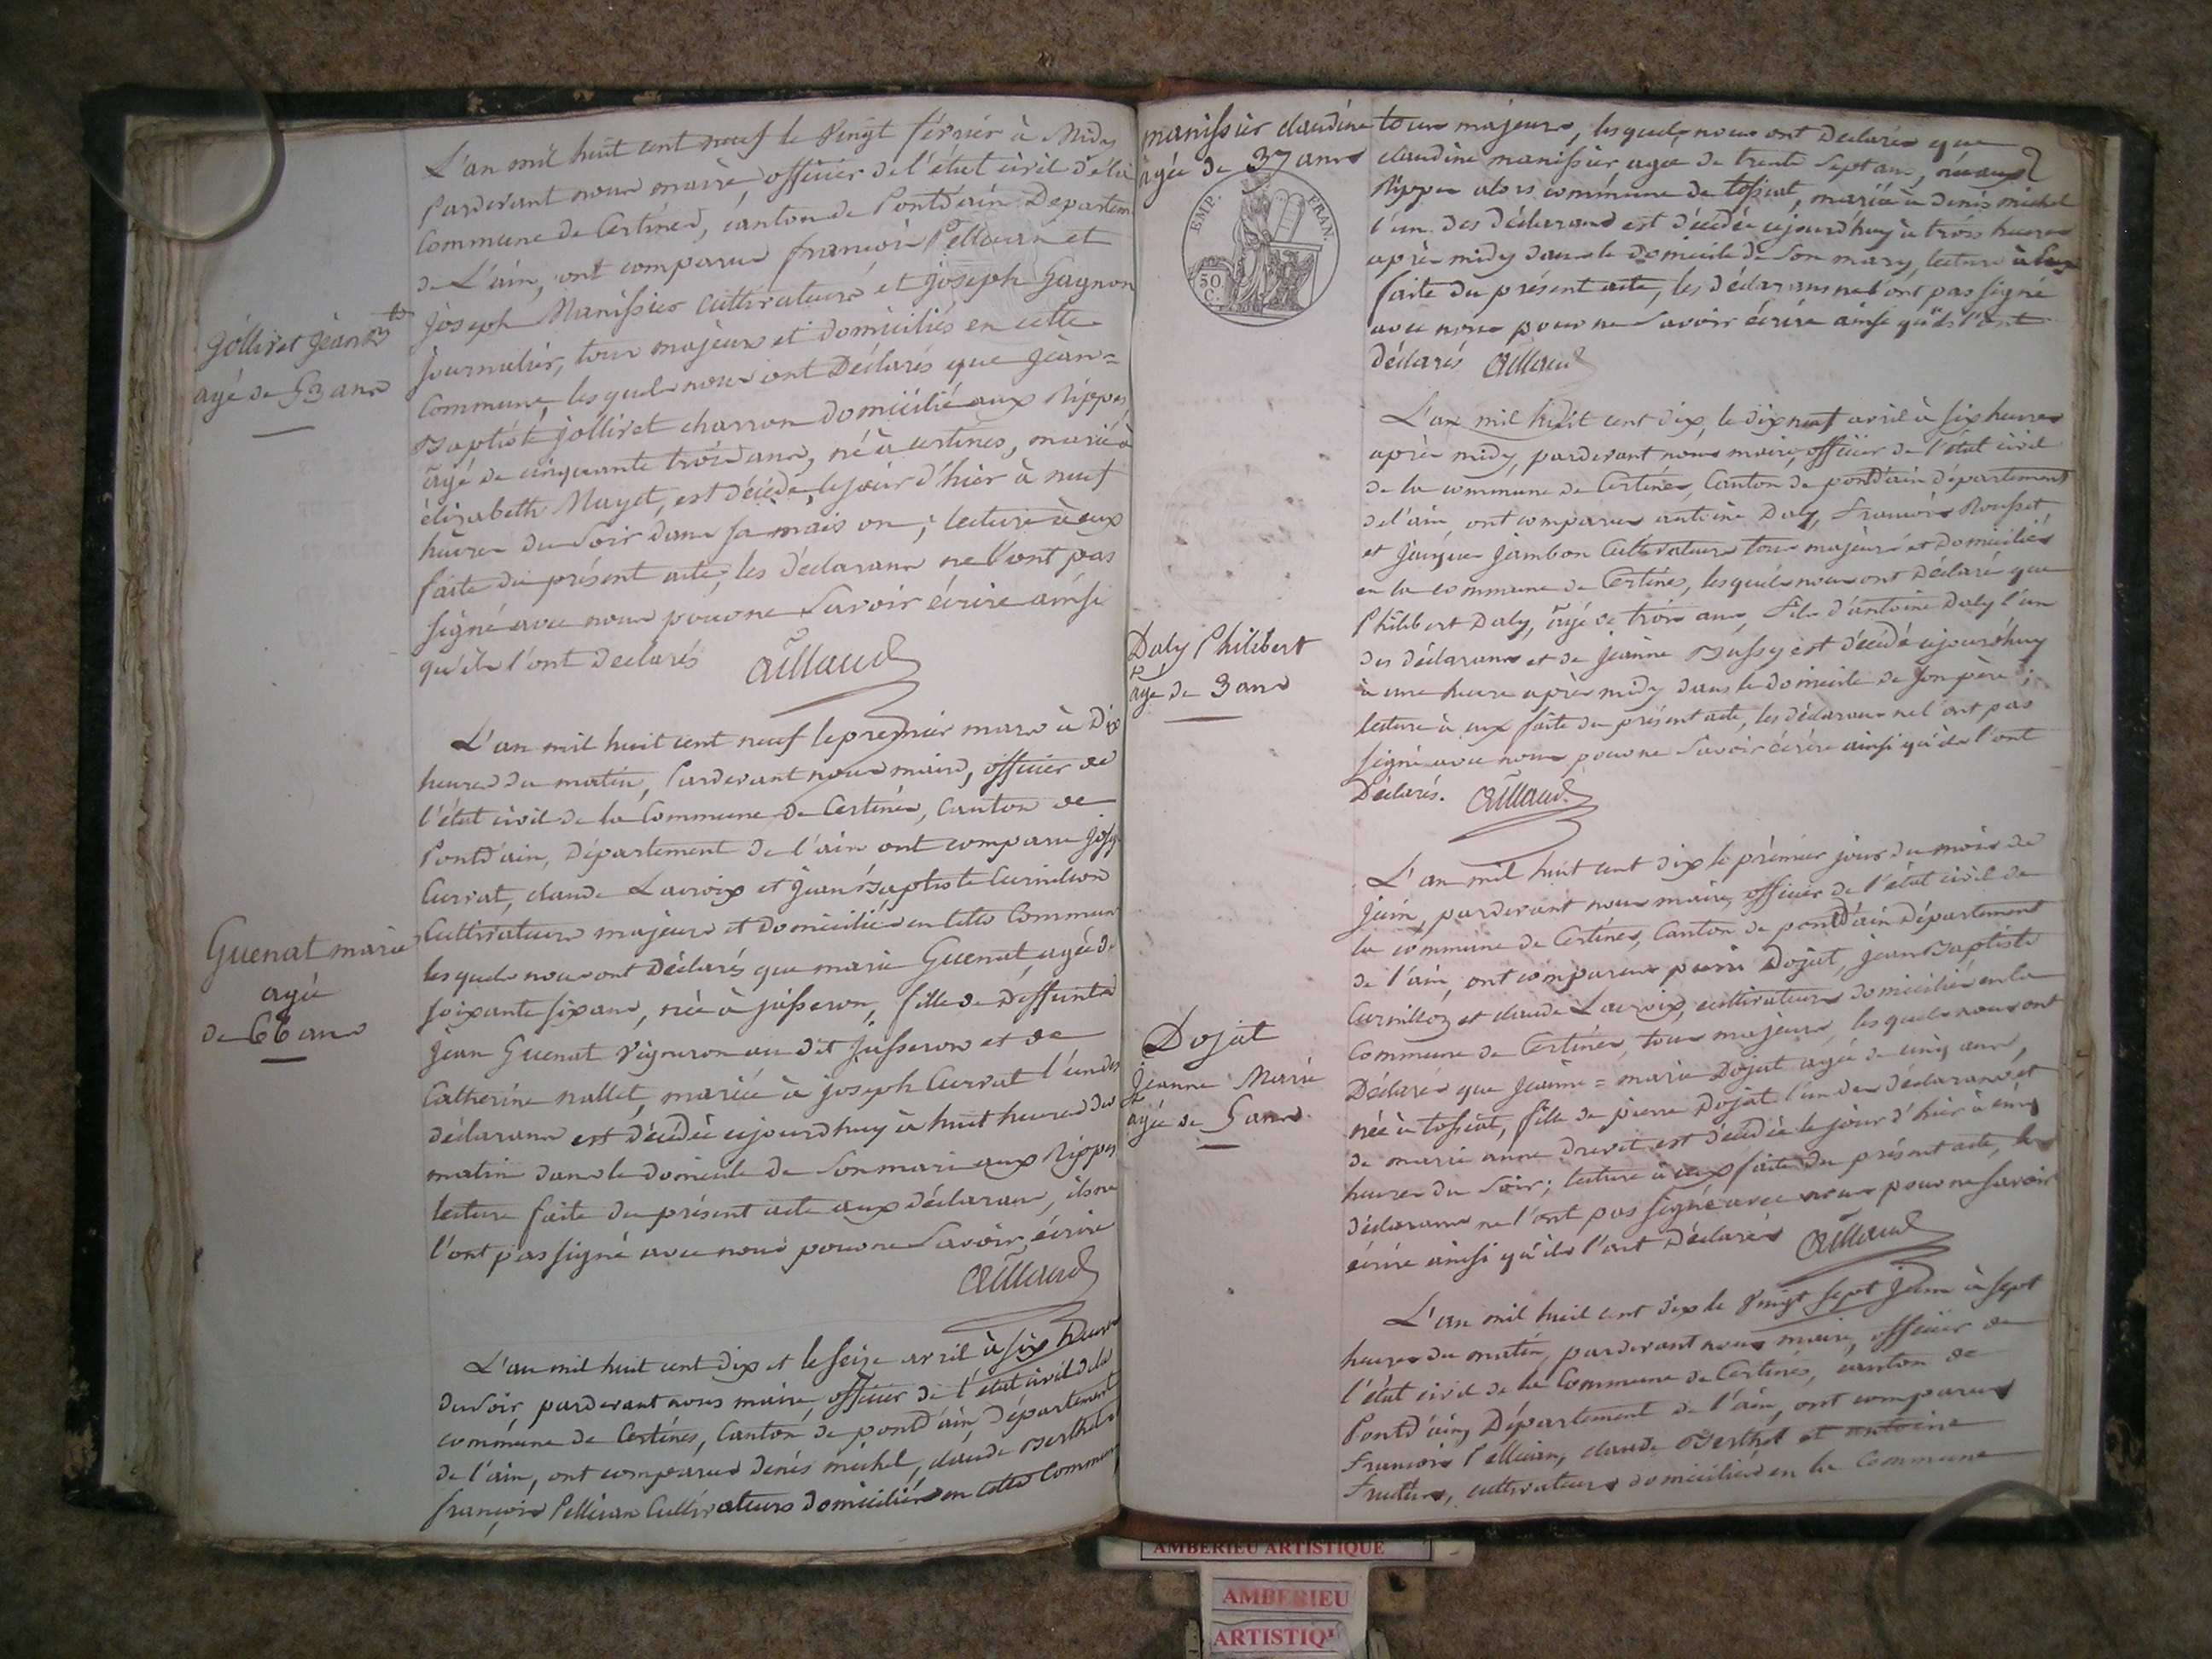 Jolliret Jean Bte
agé de 53 ans
L'an mil huit cent neuf le Vingt février à Midy
Pardevant nous maire, officier de l'état civil de la
Commune de Certines, canton de Pontd'ain Departem
de L'ain, ont comparus françois Pellecan et
Joseph Manissier cultivateurs et Joseph Gagnon
Journalier, tous majeurs et domiciliés en cette
Commune, lesquels nous ont Déclarés que Jean=
Baptiste Jolliret charron domicilié aux Rippes
agé de cinquante trois ans, né à certines, marié à
élizabeth Mayet, est décédé, le jour d'hier à neuf
heures du Soir dans sa maison; lecture à eux
faite du présent acte, les déclarans ne l'ont pas
signé avec nous pour ne Savoir écrire ainsi
qu'ils l'ont Declarés Aillaud
Guenat marie
agée
de 66 ans
L'an mil huit cent neuf le premier mars à Dix
heures du matin, Pardevant nous maire, officier de
l'état civil de la Commune de Certines, Canton de
Pontd'ain, Département de l'ain ont comparu Josep
Currat, claude Lacroix et Jean Baptiste Curnillon
Cultivateurs majeurs et Domiciliés en cette Commune
lesquels nous ont Déclarés que marie Guenat, agée de
soixante six ans, née à Jasseron, fille de Deffunts
Jean Guenat Vigneron au dit Jasseron et de
Catherine nallet, mariée à Joseph Currat l'un des
déclarans est décédée cejourdhuy à huit heures du
matin dans le domicile de Son mari aux Rippes
lecture faite du présent acte aux déclarans, ils ne
l'ont pas signé avec nous pour ne Savoir écrire
Aillaud
L'an mil huit cent dix et le seize avril à six heures
du Soir, pardevant nous maire, officier de l'état civil de la
commune de Certines, Canton de pontd'ain, Département
de l'ain, ont comparus denis michel, claude Berthet
françois Pellecan Cultivateurs domiciliés en cette Commune
manissier claudine
agée de 37 ans
EMP. FRAN.
50 C.
tous majeurs, lesquels nous ont Declarés que
claudine manissier agée de trente Sept ans, née aux
Rippes alors commune de tossiat, mariée à denis michel
l'un des déclarans est décédée cejourd'huy à trois heures
après midy dans le domicile de Son mary, lecture à eux
faite du présent acte, les déclarans ne l'ont pas signé
avec nous pour ne Savoir écrire ainsi qu'ils l'ont
déclarés Aillaud
Daly Philibert
agé de 3 ans
L'an mil huit cent dix, le dix neuf avril à six heures
après midy, pardevant nous maire, officier de l'état civil
de la commune de Certines, Canton de pontd'ain département
de l'ain, ont comparus antoine Daly, François Rousset,
et Jacques Jambon Cultivateurs tous majeurs et Domiciliés
en la commune de Certines, lesquels nous ont Déclaré que
Philibert Daly, agé de trois ans, fils d'antoine Daly l'un
des déclarans et de Jeanne Bussy est décédé cejourd'huy
à une heure après midy dans le domicile de son père;
lecture à eux faite du présent acte, les déclarans ne l'ont pas
signé avec nous pour ne Savoir écrire ainsi qu'ils l'ont
Déclarés. Aillaud
Dojat
Jeanne Marie
agée de 5 ans
L'an mil huit cent dix le premier jour du mois de
Juin, pardevant nous maire, officier de l'état civil de
la commune de Certines, Canton de pontd'ain Département
de l'ain, ont comparus pierre Dojat, Jean Baptiste
Curnillon et claude Lacroix, cultivateurs domiciliés en la
Commune de Certines, tous majeurs, lesquels nous ont
Déclarés que Jeanne=marie Dojat agée de cinq ans,
née à tossiat, fille de pierre Dojat l'un des déclarans et
de marie anne drevet est décédée le jour d'hier à cinq
heures du Soir; lecture à eux faite du présent acte, les
déclarans ne l'ont pas signé avec nous pour ne savoir
écrire ainsi qu'ils l'ont Déclarés Aillaud
L'an mil huit cent dix le Vingt sept Juin à sept
heures du matin, pardevant nous maire, officier de
l'état civil de la Commune de Certines, canton de
Pontd'ain, Département de l'ain, ont comparus
François Pellecan, claude Berthet et antoine
cultivateurs domiciliés en la Commune
AMBERIEU ARTISTIQUE
AMBERIEU
ARTISTIQU